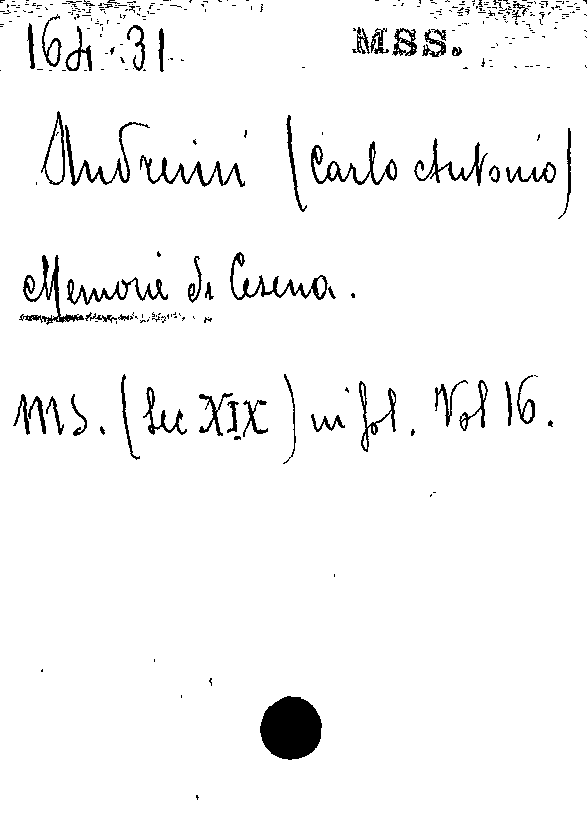 164.31 MSS.
Andreini (Carlo Antonio)
Memorie di Cesena.
MS. (Sec XIX) in fol. Vol 16.